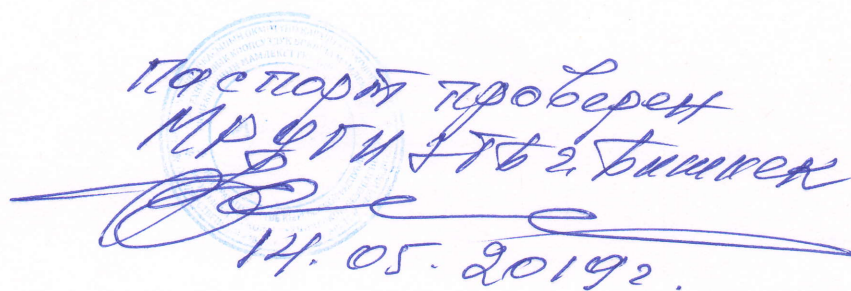 паспорт проверен
МРУГИ ЭТБ г. Бишкек
14.05.2019г.